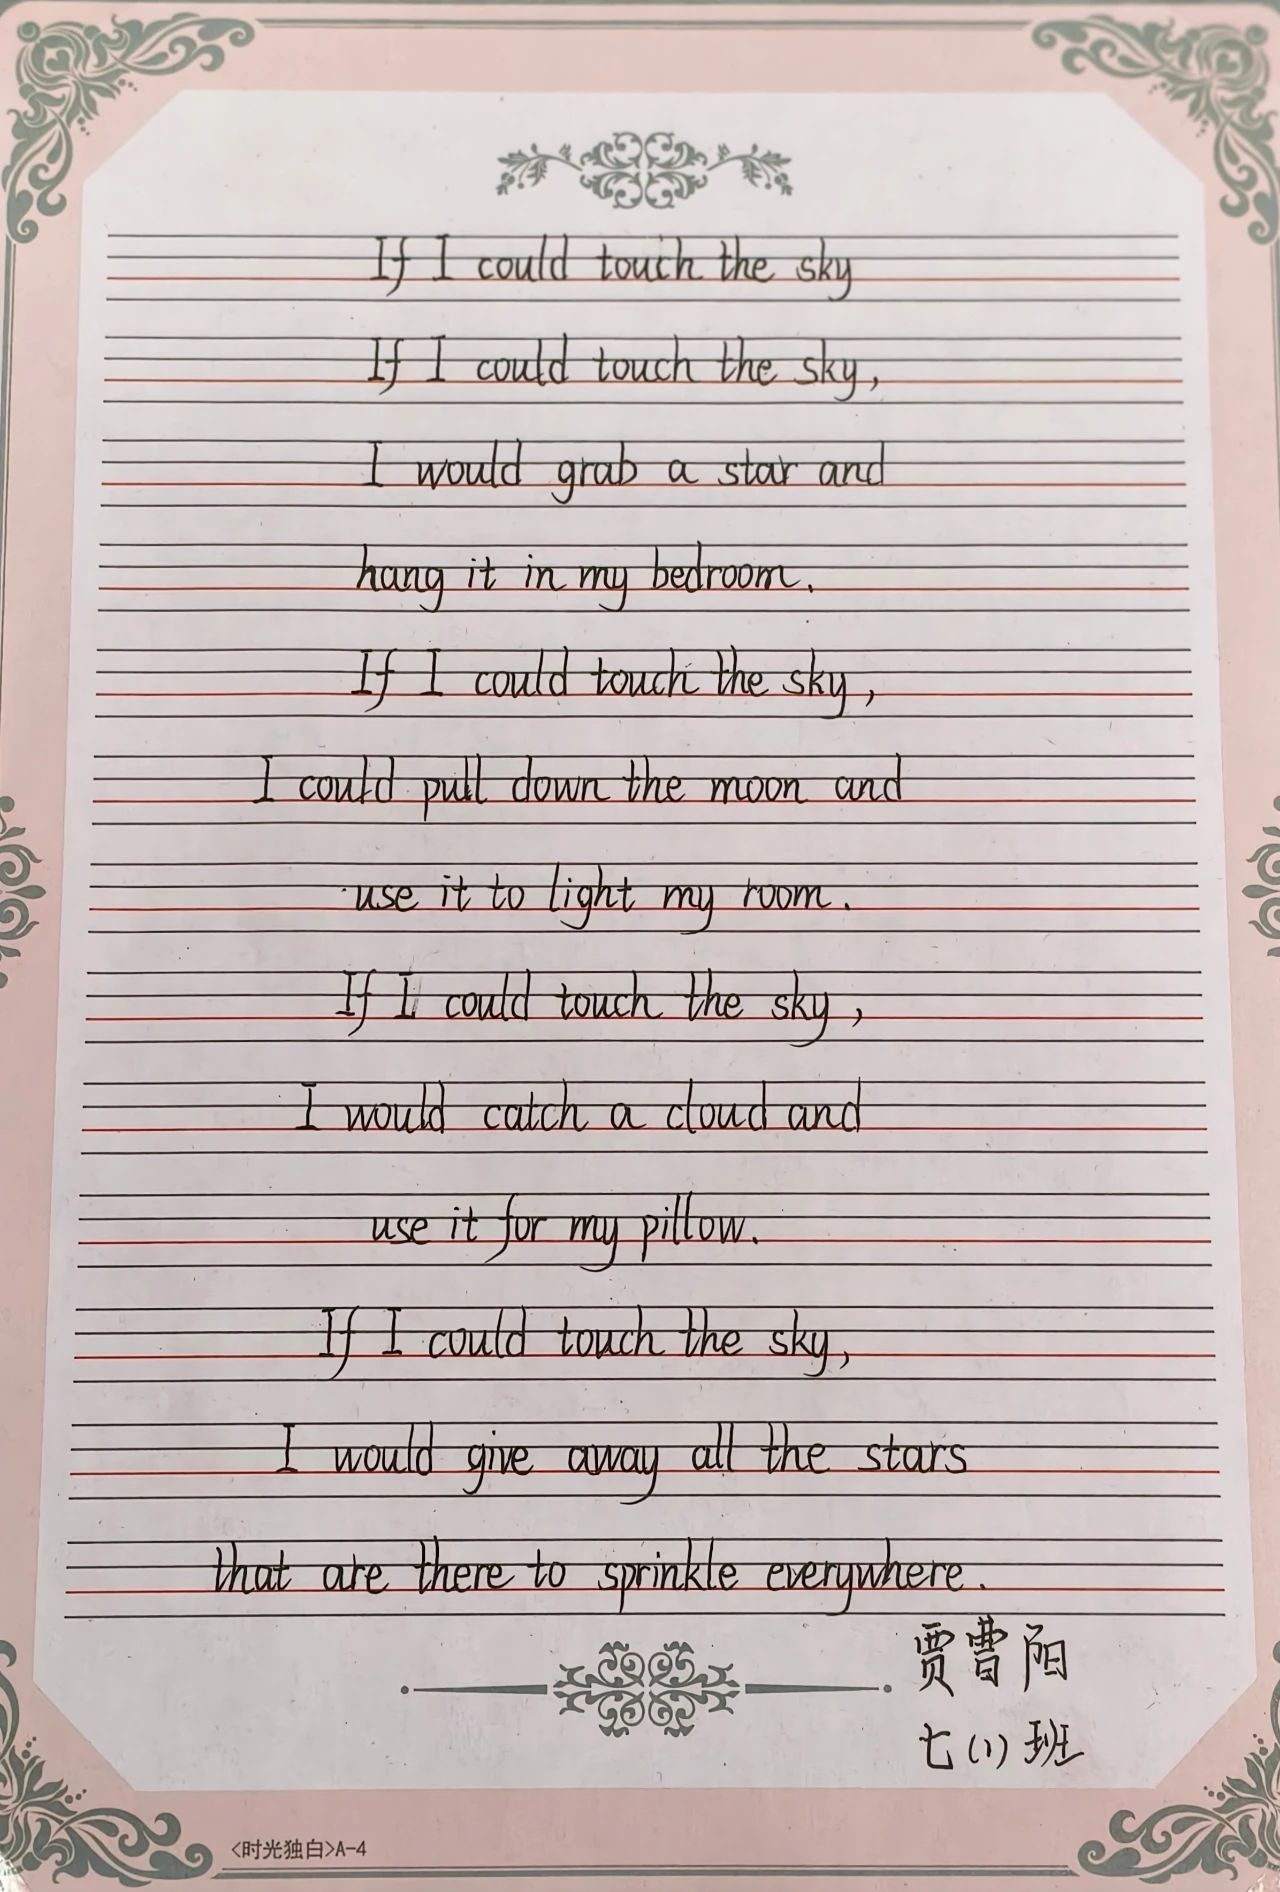 If I could touch the sky
If I could touch the sky,
I would grab a star and
hang it in my bedroom.
If I could touch the sky,
I could pull down the moon and
use it to light my room.
If I could touch the sky,
I would catch a cloud and
use it for my pillow.
If I could touch the sky,
I would give away all the stars
that are there to sprinkle everywhere.
贾曹阳
七(1)班
<时光独白>A-4